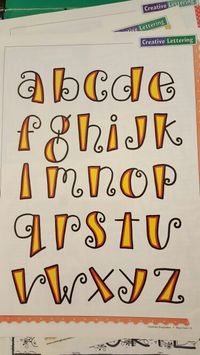 Creative Lettering
Creative Lettering
Creative Lettering
abcde
fghijk
lmnop
qrstu
vwxyz